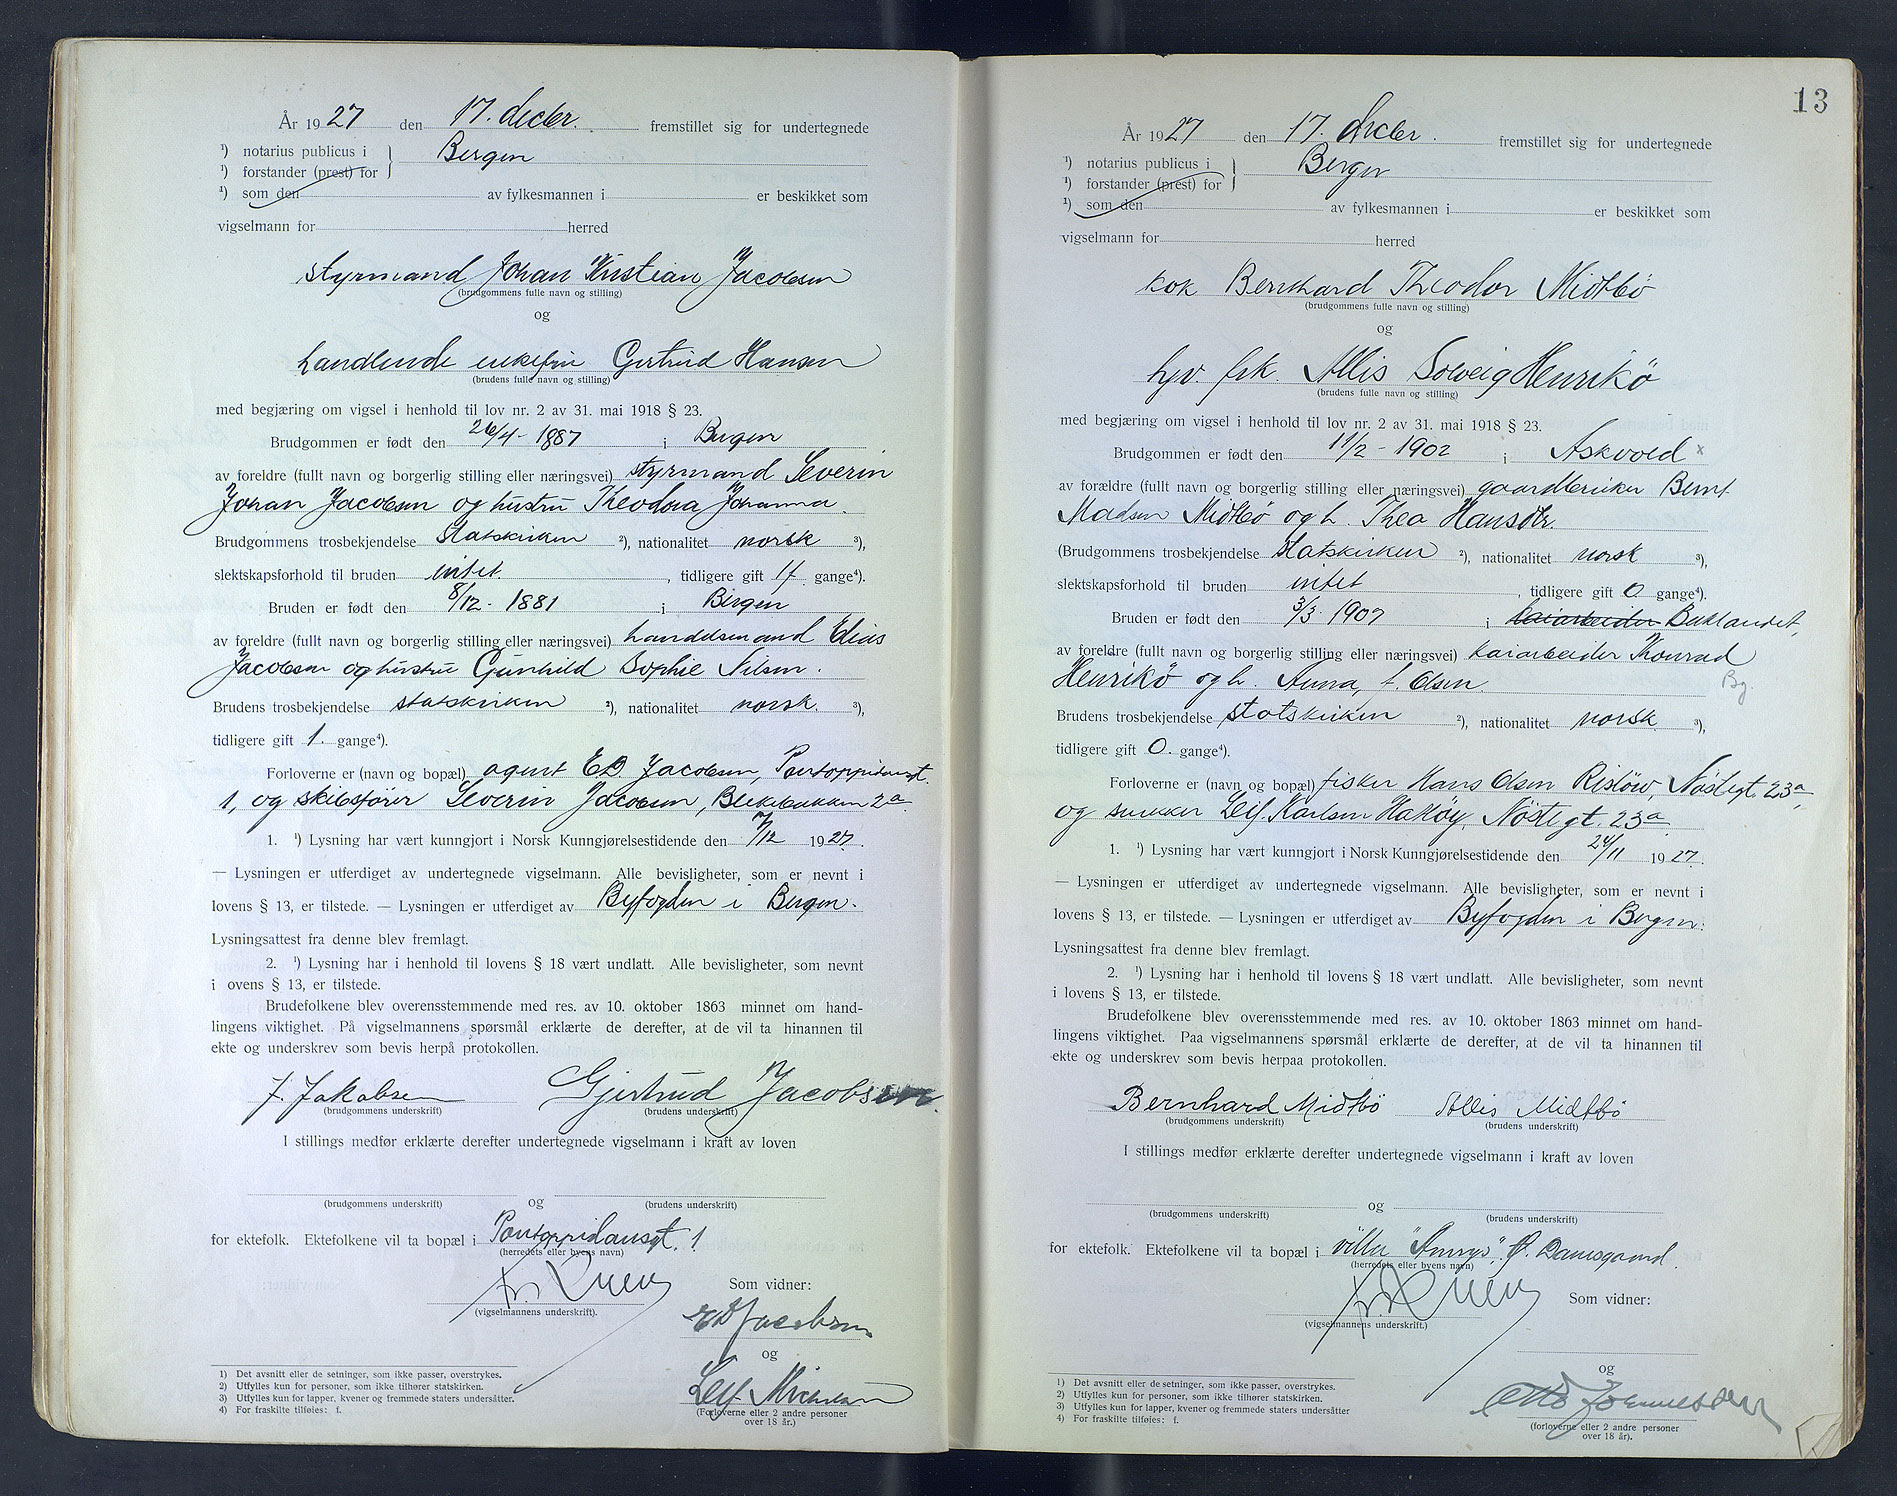 År 1927 den 17. decbr. fremstillet sig for undertegnede
¹) notarius publicus i } Bergen
¹) forstander (prest) for
¹) som den av fylkesmannen i er beskikket som
vigselmann for herred
styrmand Johan Kristian Jacobsen
(brudgommens fulle navn og stilling)
og
handlende enkefru Gertrud Hansen
(brudens fulle navn og stilling)
med begjæring om vigsel i henhold til lov nr. 2 av 31. mai 1918 § 23.
Brudgommen er født den 26/4 - 1887 i Bergen
av foreldre (fullt navn og borgerlig stilling eller næringsvei) styrmand Severin
Johan Jacobsen og hustru Theodora Johanna.
Brudgommens trosbekjendelse Statskirken ²), nationalitet norsk ³),
slektskapsforhold til bruden intet. , tidligere gift 1 f. gange⁴).
Bruden er født den 8/12 - 1881 i Bergen
av foreldre (fullt navn og borgerlig stilling eller næringsvei) handelsmand Elias
Jacobsen og hustru Gunhild Sophie Nilsen.
Brudens trosbekjendelse statskirken ²), nationalitet norsk. ³),
tidligere gift 1. gange⁴).
Forloverne er (navn og bopæl) agent ED Jacobsen, Pontoppidansgt.
1, og skibsfører Severin Jacobsen, Blekebakken 2a
1. ¹) Lysning har vært kunngjort i Norsk Kunngjørelsestidende den 7/12 1927.
— Lysningen er utferdiget av undertegnede vigselmann. Alle bevisligheter, som er nevnt i
lovens § 13, er tilstede. — Lysningen er utferdiget av Byfogden i Bergen.
Lysningsattest fra denne blev fremlagt.
2. ¹) Lysning har i henhold til lovens § 18 vært undlatt. Alle bevisligheter, som nevnt
i ovens § 13, er tilstede.
Brudefolkene blev overensstemmende med res. av 10. oktober 1863 minnet om hand-
lingens viktighet. På vigselmannens spørsmål erklærte de derefter, at de vil ta hinannen til
ekte og underskrev som bevis herpå protokollen.
J. Jakobsen Gjertrud Jacobsen.
(brudgommens underskrift) (brudens underskrift)
I stillings medfør erklærte derefter undertegnede vigselmann i kraft av loven
og
(brudgommens underskrift) (brudens underskrift)
for ektefolk. Ektefolkene vil ta bopæl i Pontoppidansgt. 1
(herredets eller byens navn)
Som vidner:
(vigselmannens underskrift).
ED Jacobsen
og
Leif
(Forloverne eller 2 andre personer
over 18 år.)
1) Det avsnitt eller de setninger, som ikke passer, overstrykes.
2) Utfylles kun for personer, som ikke tilhører statskirken.
3) Utfylles kun for lapper, kvener og fremmede staters undersåtter.
4) For fraskilte tilføies: f.
13
År 1927 den 17. decbr. fremstillet sig for undertegnede
¹) notarius publicus i } Bergen
¹) forstander (prest) for
¹) som den av fylkesmannen i er beskikket som
vigselmann for herred
kok Bernhard Theodor Midtbö
(brudgommens fulle navn og stilling)
og
hjv. frk. Allis Solveig Henrikö
(brudens fulle navn og stilling)
med begjæring om vigsel i henhold til lov nr. 2 av 31. mai 1918 § 23.
Brudgommen er født den 11/2 - 1902 i Askvold x
av forældre (fullt navn og borgerlig stilling eller næringsvei) gaardbruker Bernt
Madsen Midtbö og h. Thea Hansdtr
(Brudgommens trosbekjendelse statskirken ²), nationalitet norsk ³),
slektskapsforhold til bruden intet , tidligere gift 0 gange⁴).
Bruden er født den 3/3 1907 i kaiarbeider Buklandet,
av foreldre (fullt navn og borgerlig stilling eller næringsvei) kaiarbeider Konrad
Henrikö og h. Anna, f. Olsen. Bg.
Brudens trosbekjendelse statskirken ²), nationalitet norsk ³),
tidligere gift 0. gange⁴).
Forloverne er (navn og bopæl) fisker Hans Olsen Risløw, Nöstegt. 23a,
og snekker Leif Karlsen Haköy, Nöstegt. 23a
1. ¹) Lysning har vært kunngjort i Norsk Kunngjørelsestidende den 24/11 1927.
— Lysningen er utferdiget av undertegnede vigselmann. Alle bevisligheter, som er nevnt i
lovens § 13, er tilstede. — Lysningen er utferdiget av Byfogden i Bergen.
Lysningsattest fra denne blev fremlagt.
2. ¹) Lysning har i henhold til lovens § 18 vært undlatt. Alle bevisligheter, som nevnt
i lovens § 13, er tilstede.
Brudefolkene blev overensstemmende med res. av 10. oktober 1863 minnet om hand-
lingens viktighet. Paa vigselmannens spørsmål erklærte de derefter, at de vil ta hinannen til
ekte og underskrev som bevis herpaa protokollen.
Bernhard Midtbö Allis Midtbö
(brudgommens underskrift) (brudens underskrift)
I stillings medfør erklærte derefter undertegnede vigselmann i kraft av loven
og
(brudgommens underskrift) (brudens underskrift)
for ektefolk. Ektefolkene vil ta bopæl i villa "Amrys", Ø. Damsgaard.
(herredets eller byens navn)
Som vidner:
(vigselmannens underskrift.)
og
Otto Johannessen
(forloverne eller 2 andre personer
over 18 år).
1) Det avsnitt eller de setninger, som ikke passer, overstrykes.
2) Utfylles kun for personer, som ikke tilhører statskirken.
3) Utfylles kun for lapper, kvener og fremmede staters undersåtter
4) For fraskilte tilføies: f.